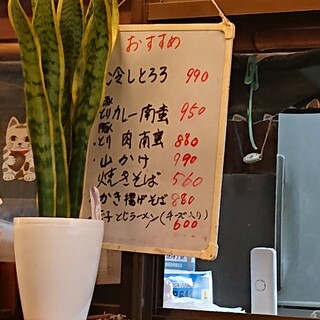 おすすめ
冷しとろろ 990
豚
とり カレー南蛮 950
豚
とり 肉南蛮 880
山かけ 990
焼きそば 560
かき揚げそば 880
玉子とじラーメン(チーズ入り)
600